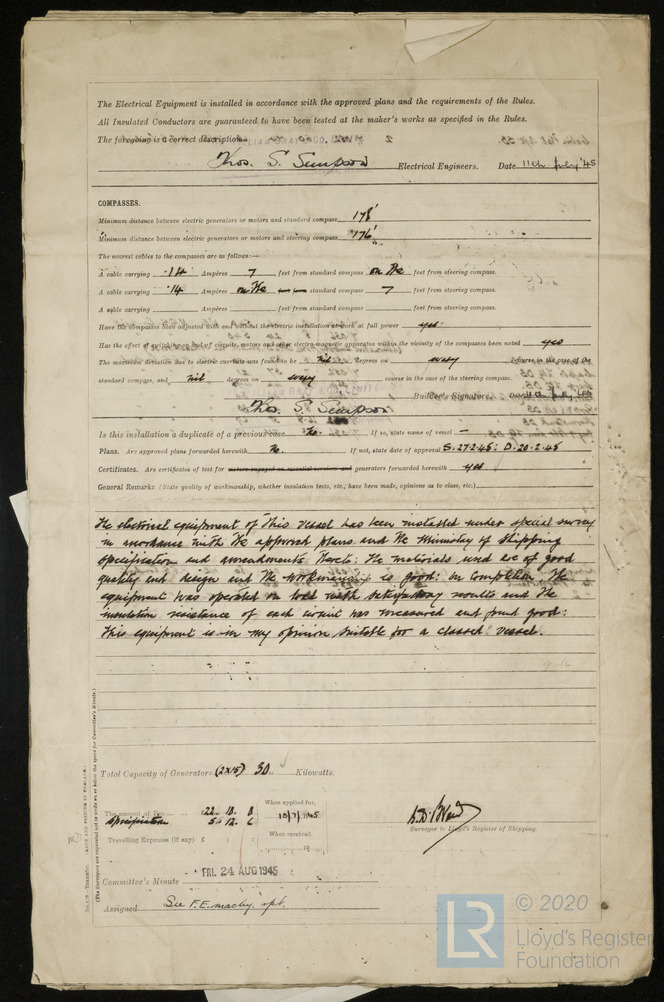 The Electrical Equipment is installed in accordance with the approved plans and the requirements of the Rules.
All Insulated Conductors are guaranteed to have been tested at the maker's works as specified in the Rules.
The foregoing is a correct description.
Thos. S. Simpson Electrical Engineers. Date 11th July '45
COMPASSES.
Minimum distance between electric generators or motors and standard compass 178'
Minimum distance between electric generators or motors and steering compass 176'
The nearest cables to the compasses are as follows:—
A cable carrying .14 Ampères 7 feet from standard compass on the feet from steering compass.
A cable carrying .14 Ampères on the standard compass 7 feet from steering compass.
A cable carrying Ampères feet from standard compass feet from steering compass.
Have the compasses been adjusted with and without the electric installation at work at full power yes
Has the effect of switching on and off circuits, motors and other electro-magnetic apparatus within the vicinity of the compasses been noted yes
The maximum deviation due to electric currents was found to be nil degrees on every course in the case of the
standard compass, and nil degrees on every course in the case of the steering compass.
Thos. S. Simpson Builder's Signature. Date 11th July
Is this installation a duplicate of a previous case No. If so, state name of vessel —
Plans. Are approved plans forwarded herewith No. If not, state date of approval S. 27.2.45: D. 20.2.45
Certificates. Are certificates of test for motors engaged on essential services and generators forwarded herewith yes
General Remarks (State quality of workmanship, whether insulation tests, etc., have been made, opinions as to class, etc.)
The electrical equipment of this vessel has been installed under special survey
in accordance with the approved plans and the Ministry of Shipping
specification and amendments thereto: The materials used are of good
quality and design and the workmanship is good: on completion the
equipment was operated on load with satisfactory results and the
insulation resistance of each circuit was measured and found good:
This equipment is in my opinion suitable for a classed vessel.
Total Capacity of Generators (2x15) 30 Kilowatts.
The amount of Fee 22. 10. 0 When applied for,
Specification 5. 12. 6 10/7/1945
Travelling Expenses (if any) £ When received.
19
Surveyor to Lloyd's Register of Shipping.
FRI. 24 AUG 1945
Committee's Minute
Assigned See F.E. machy. rpt.
(The Surveyors are requested not to write on or below the space for Committee's Minute.)
LR © 2020
Lloyd's Register
Foundation